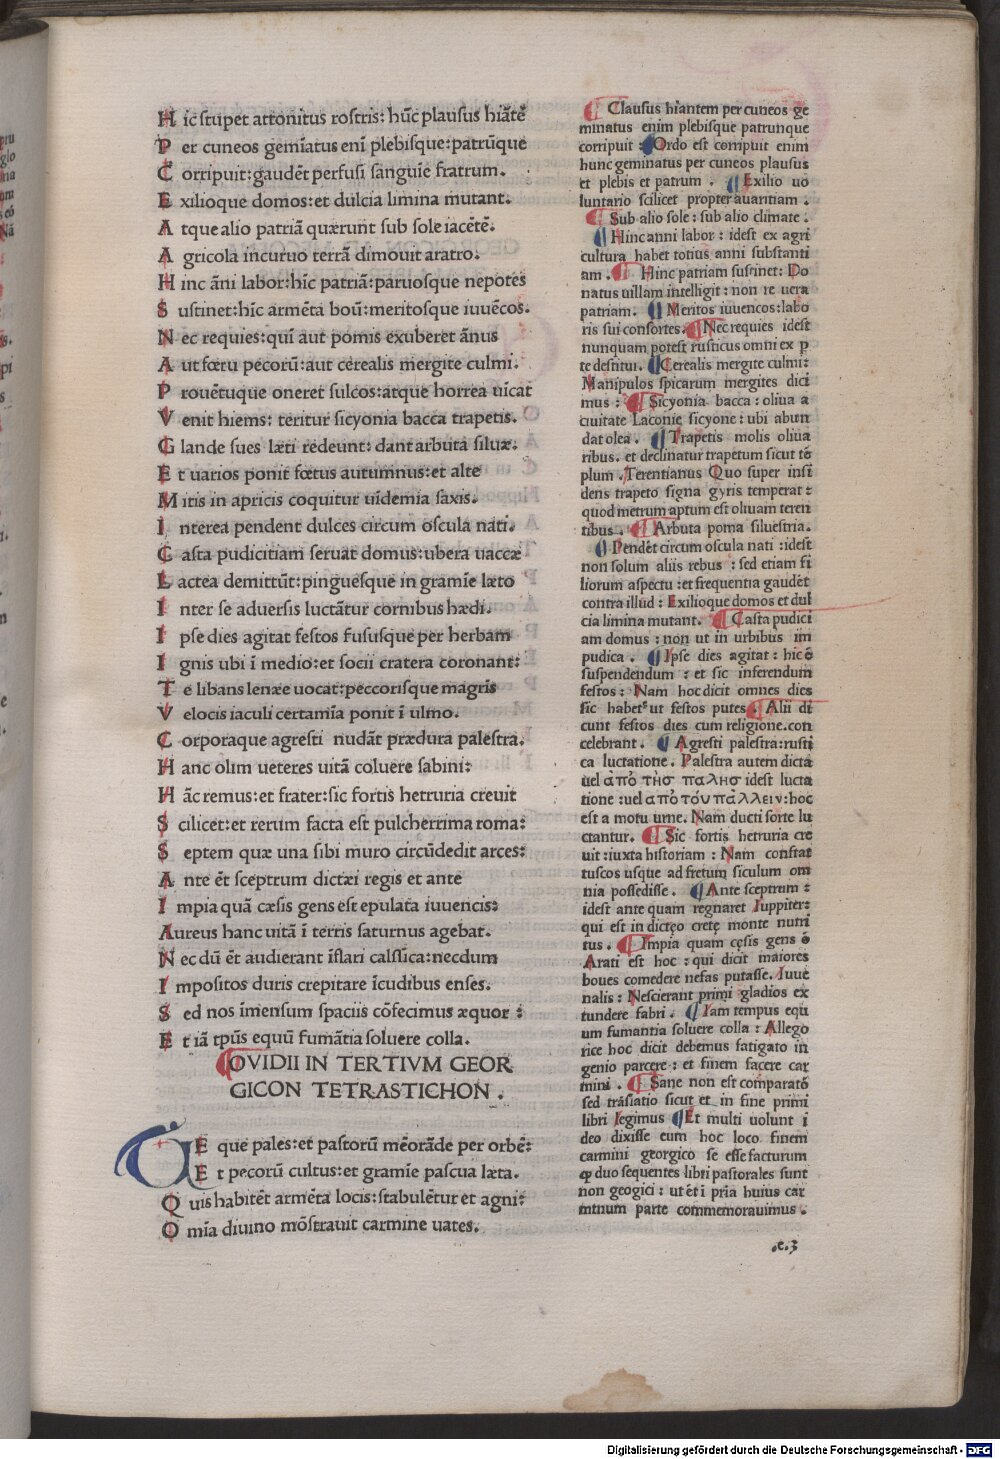 H ic stupet attonitus rostris: hūc plausus hiātē
P er cuneos gemīatus enī plebisque: patrūque
C orripuit: gaudēt perfusi sāguīe fratrum.
E xilioque domos: et dulcia limina mutant.
A tque alio patriā quærunt sub sole iacētē.
A gricola incuruo terrā dimouit aratro.
H inc āni labor: hīc patriā: paruosque nepotes
S ustinet: hīc armēta boū: meritosque iuuēcos.
N ec requies: quī aut pomis exuberet ānus
A ut fœtu pecorū: aut cerealis mergite culmi.
P rouētuque oneret sulcos: atque horrea uīcat
V enit hiems: teritur sicyonia bacca trapetis.
G lande sues læti redeunt: dant arbuta siluæ.
E t uarios ponit fœtus autumnus: et alte
M itis in apricis coquitur uīdemia saxis.
I nterea pendent dulces circum oscula nati.
C asta pudicitiam seruat domus: ubera uaccæ
L actea demittūt: pinguesque in gramīe læto
I nter se aduersis luctātur cornibus hædi.
I pse dies agitat festos fususque per herbam
I gnis ubi ī medio: et socii cratera coronant:
T e libans lenæe uocat: peccorisque magrīs
V elocis iaculi certamīa ponit ī ulmo.
C orporaque agresti nudāt prædura palestra.
H anc olim ueteres uitā coluere sabini:
H āc remus: et frater: sic fortis hetruria creuit
S cilicet: et rerum facta est pulcherrima roma:
S eptem quæ una sibi muro circūdedit arces:
A nte ēt sceptrum dictæi regis et ante
I mpia quā cæsis gens est epulata iuuencis:
A ureus hanc uitā ī terris saturnus agebat.
N ec dū ēt audierant īflari calssica: necdum
I mpositos duris crepitare īcudibus enses.
S ed nos īmensum spaciis cōfecimus æquor :
E t iā tpūs equū fumātia soluere colla.
OVIDII IN TERTIVM GEOR
GICON TETRASTICHON .
TE que pales: et pastorū mēorāde per orbē:
E t pecorū cultus: et gramīe pascua læta.
Q uis habitēt armēta locis: stabulētur et agni:
O mīa diuino mōstrauit carmine uates.
Clausus hiantem per cuneos ge
minatus enim plebisque patrunque
corripuit : Ordo est corripuit enim
hunc geminatus per cuneos plausus
et plebis et patrum . Exilio uo
luntario scilicet propter auaritiam .
Sub alio sole : sub alio climate .
Hinc anni labor : idest ex agri
cultura habet totius anni substanti
am . Hinc patriam sustinet: Do
natus uillam intelligit : non re uera
patriam. Meritos iuuencos: labo
ris sui consortes. Nec requies idest
nunquam potest rusticus omni ex p
te destitui. Cerealis mergite culmi:
Manipulos spicarum mergites dici
mus : Sicyonia bacca : oliua a
ciuitate Laconie sicyone : ubi abun
dat olea . Trapetis molis oliua
ribus. et declinatur trapetum sicut tē
plum . Terentianus Quo super insi
dens trapeto signa gyris temperat :
quod metrum aptum est oliuam teren
tibus . Arbuta poma siluestria.
Pendēt circum oscula nati : idest
non solum aliis rebus : sed etiam fi
liorum aspectu : et frequentia gaudēt
contra illud : Exilioque domos et dul
cia limina mutant. Casta pudici
am domus : non ut in urbibus im
pudica . Ipse dies agitat : hic ē
suspendendum : et sic inferendum
festos : Nam hoc dicit omnes dies
sic habet ut festos putes. Alii di
cunt festos dies cum religione. con
celebrant . Agresti palestra: rusti
ca luctatione . Palestra autem dicta
uel ἀπὸ τῆσ παλησ idest lucta
tione : uel απὸ τόυ πάλλειν: hoc
est a motu urne. Nam ducti sorte lu
ctantur. Sic fortis hetruria cre
uit : iuxta historiam : Nam constat
tuscos usque ad fretum siculum om
nia possedisse . Ante sceptrum :
idest ante quam regnaret Iuppiter:
qui est in dictęo cretę monte nutri
tus . Impia quam cęsis gens ē
Arati est hoc : qui dicit maiores
boues comedere nefas putasse. Iuue
nalis : Nescierant primi gladios ex
tundere fabri . Iam tempus equ
um fumantia soluere colla : Allego
rice hoc dicit debemus fatigato in
genio parcere : et finem facere car
mini . Sane non est comparatō
sed trāsiatio sicut et in fine primi
libri legimus Et multi uolunt i
deo dixisse eum hoc loco finem
carmini georgico se esse facturum
ꝙ duo sequentes libri pastorales sunt
non geogici : ut ēt ī prīa huius car
minum parte commemorauimus .
.e.3
Digitalisierung gefördert durch die Deutsche Forschungsgemeinschaft - DFG